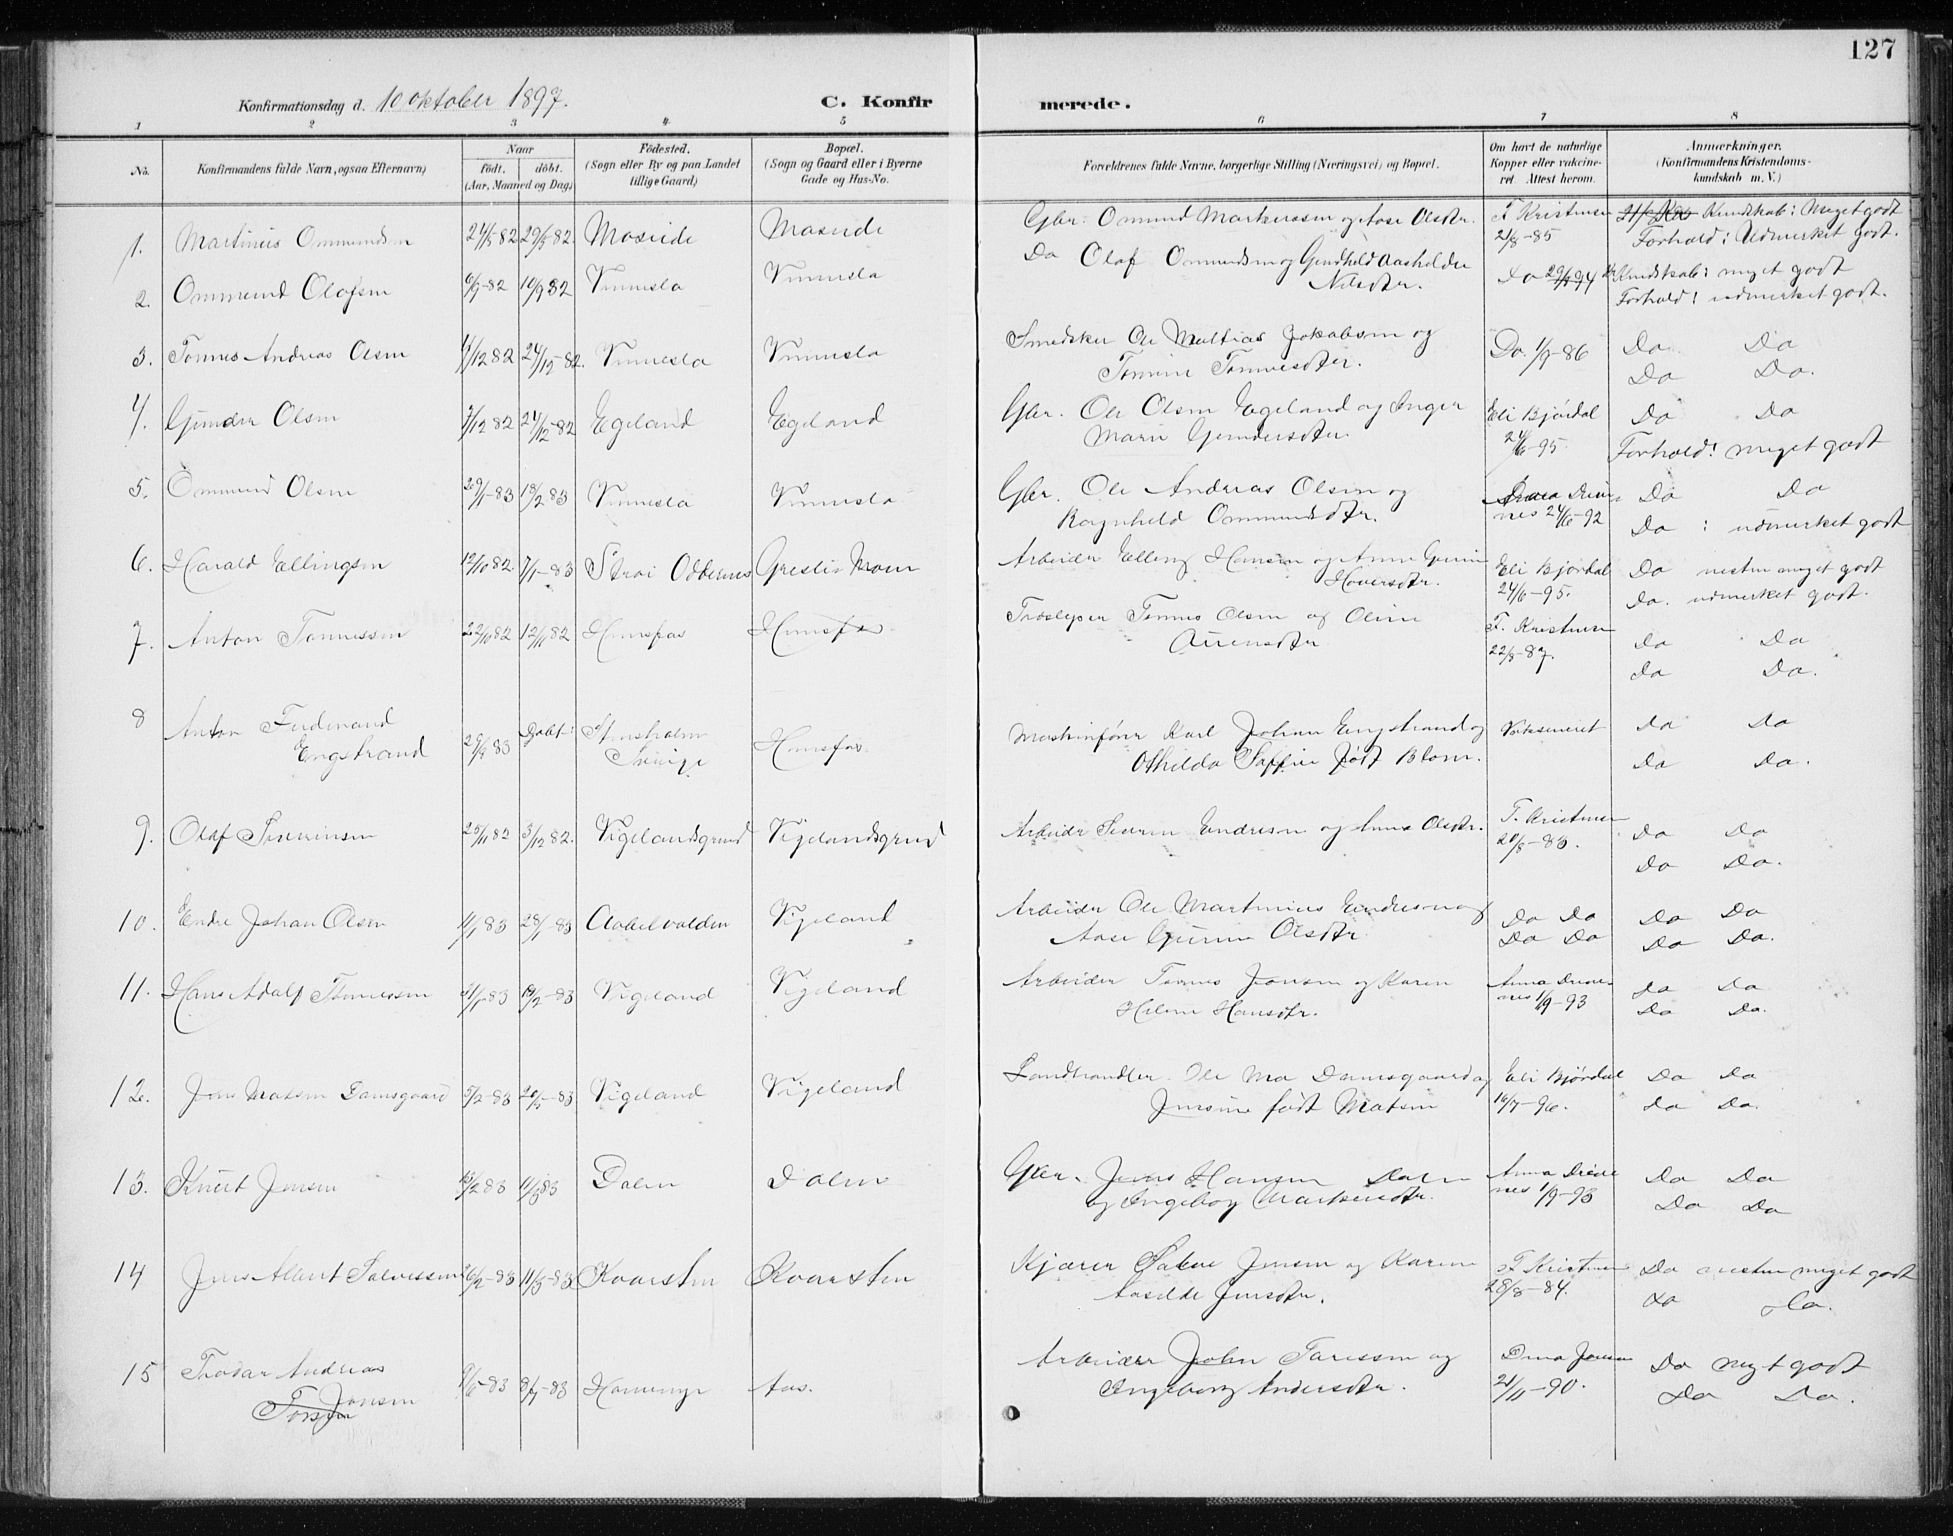 127
Konfirmationsdag d. 10 oktober 1897. C. Konfir merede.
1 2 3 4 5 6 7 8
No. Konfirmandens fulde Navn, ogsaa Efternavn) Naar födt. döbt. (Aar, Maaned og Dag) Födested. (Sogn eller By og paa Landet tillige Gaard) Bopæl. (Sogn og Gaard eller i Byerne Gade og Hus-No. Forældrenes fulde Navne, borgerlige Stilling (Næringsvei) og Bopæl. Om havt de naturlige Kopper eller vakcineret. Attest herom. Anmærkninger. (Konfirmandens Kristendomskundskab m. V.)
1. Martinius Ommundsen 24/5 82 29/5 82 Moseide Moseide Gbr. Ommund Markussen og Aase Olsdtr. F Kristensen 21/8-85 Kundskab: Meget godt
Forhold: Udmerket godt.
2. Ommund Olafsen 6/9-82 10/9 82 Vennesla Vennesla Do Olaf Ommundsen og Gundhild Aasholder Nilsdtr. Do Kundskab: meget godt
Forhold: udmerket godt.
3. Tønnes Andreas Olsen 24/12-82. Vennesla Vennesla Ole Mathias Jakobsen og
Tomine Tønnesdtr. Do. 1/9-86 Do Do
Do Do.
4. Gunder Olsen 7/12 82 24/12-82 Egeland Egeland Gbr. Ole Olsen Egeland og Inger
Marie Gundersdtr. Eli Bjórdal 24/6-95. Do Do
Forhold: meget godt
5. Ommund Olsen 29/1-83 18/2 83 Vennesla Vennesla Gbr. Ole Andreas Olsen og
Ragnhild Ommundsdtr. Drivenes 24/6-92 Do Do
Do : udmerket godt
6. Harald Ellingsen 12/10 82 7/1-83 Strai Odbernes Arbeider Elling Hansen og Anne
Eli Bjórdal 24/6-95. Do nesten meget godt
Do. udmerket godt.
7. Anton Tønnessen 22/10 82 12/11 82 Hunsfos Hunsfos Træsliper Tønnes Olsen og Oline
F. Kristensen 22/8-87. Do Do
Do Do.
8 Anton Ferdinand
Engstrand Döbt: Sverige Hunsfos Maskinfører Karl Johan Engstrand og
Othilda Soffie født Blom. Vaksineret Do Do
Do Do.
9. Olaf Severinsen 25/11 82 3/12 82. Vigelandsgrund Vigelandsgrund Arbeider Severin Endresen og Anne Olsdtr. F. Kristensen Do Do
Do Do.
10. Endre Johan Olsen 11/1 83 28/1-83 Aabelvolden Vigeland Arbeider Ole Martinius Endresen og
Aase Gurine Olsdtr Do Do Do Do
Do Do Do Do.
11. Hans Adolf Tønnessen 31/1-83 18/2-83 Vigeland Vigeland Arbeider Tønnes Jensen og Karen
Helene Hansdtr. Anna Drivenes 1/9-93 Do Do
Do Do.
12. Jens Matsen Damsgaard 5/2-83 20/5-83 Vigeland Vigeland Landhandler Ole Mo Damsgaard og
Jensine født Matsen Eli Bjórdal 16/7-96. Do Do
Do Do.
13. Knut Jensen 13/2 83 11/3 83 Dalen Dalen Gbr. Jens Hansen Dalen
og Ingeborg Markusdtr. Anna Drivenes 1/9-93 Do Do
Do Do
14 Jens Albert Salvessen 26/2-83 11/3-83 Kvarsten Kvarsten Kjører Salve Jensen og Karen
Aasilde Jensdtr. F Kristensen 28/8-84. Do nesten meget godt
Do Do.
15 Trodar Andreas
Jonsen 9/6-83 8/7-83 Aas. Arbeider John Taressen og
Ingeborg Andersdtr. 21/11-90. Do meget godt
Do Do.